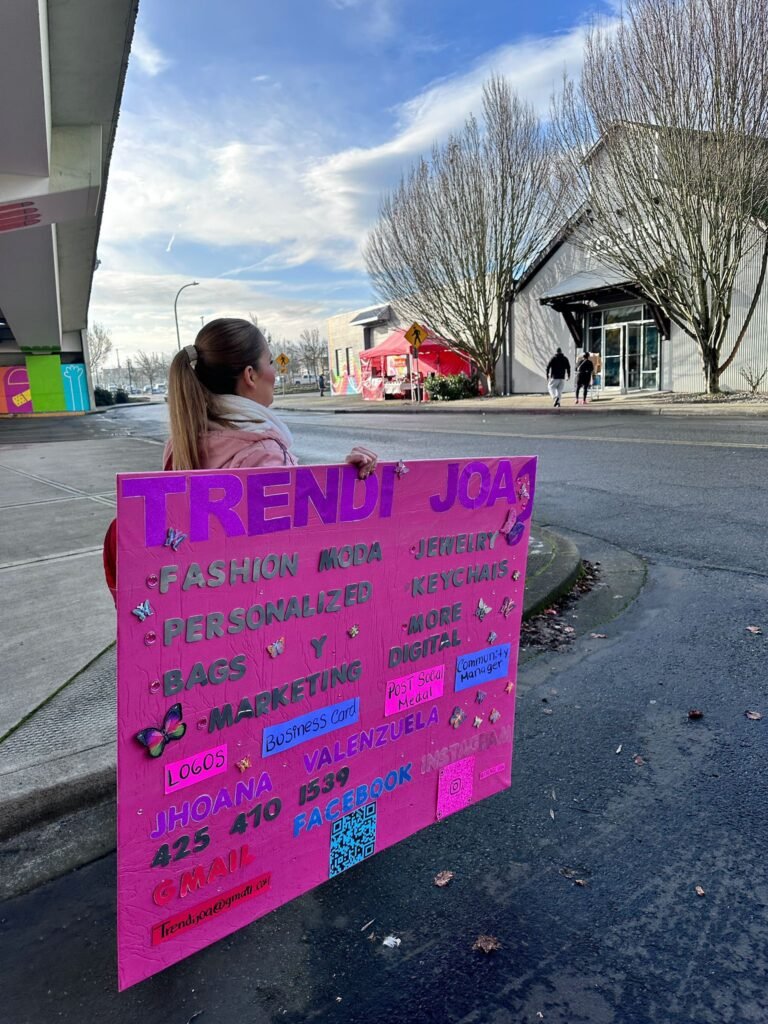 TRENDI JOA
FASHION MODA
JEWELRY
PERSONALIZED
KEYCHAIS
BAGS Y
MORE
MARKETING
DIGITAL
LOGOS
Business Card
POST SOCIAL
Medial
Community
Manager
JHOANA VALENZUELA
425 410 1539
FACEBOOK
INSTAGRAM
GMAIL
Trendijoa@gmail.com